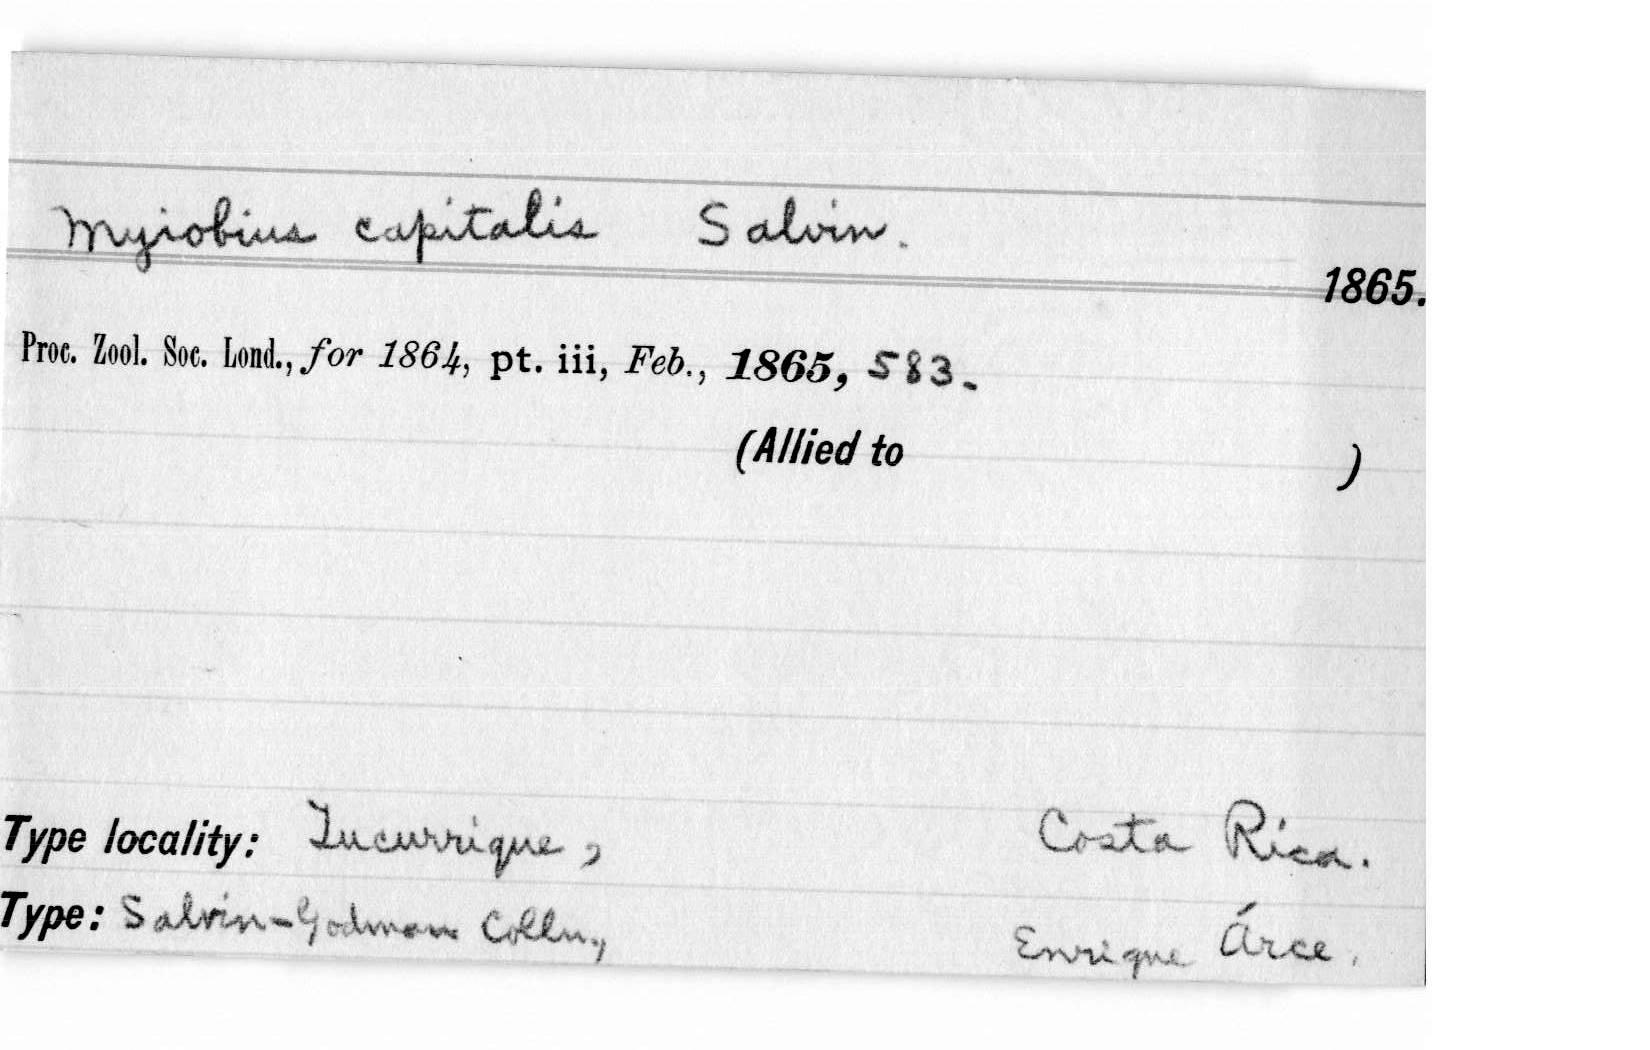 Myiobius capitalis Salvin.
1865.
Proc. Zool. Soc. Lond., for 1864, pt. iii, Feb., 1865, 583.
(Allied to )
Type locality: Tucurrique, Costa Rica.
Type: Salvin-Godman Colln., Enrique Árce.